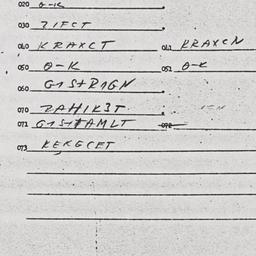 020 O-K
030 ZIFCT
040 KRAXCT 041 KRAXCN
050 O-K 051 O-K
060 G1S+R1GN
070 ZAHIK3T
071 G1S+FAMLT 072
073 KERGCFT